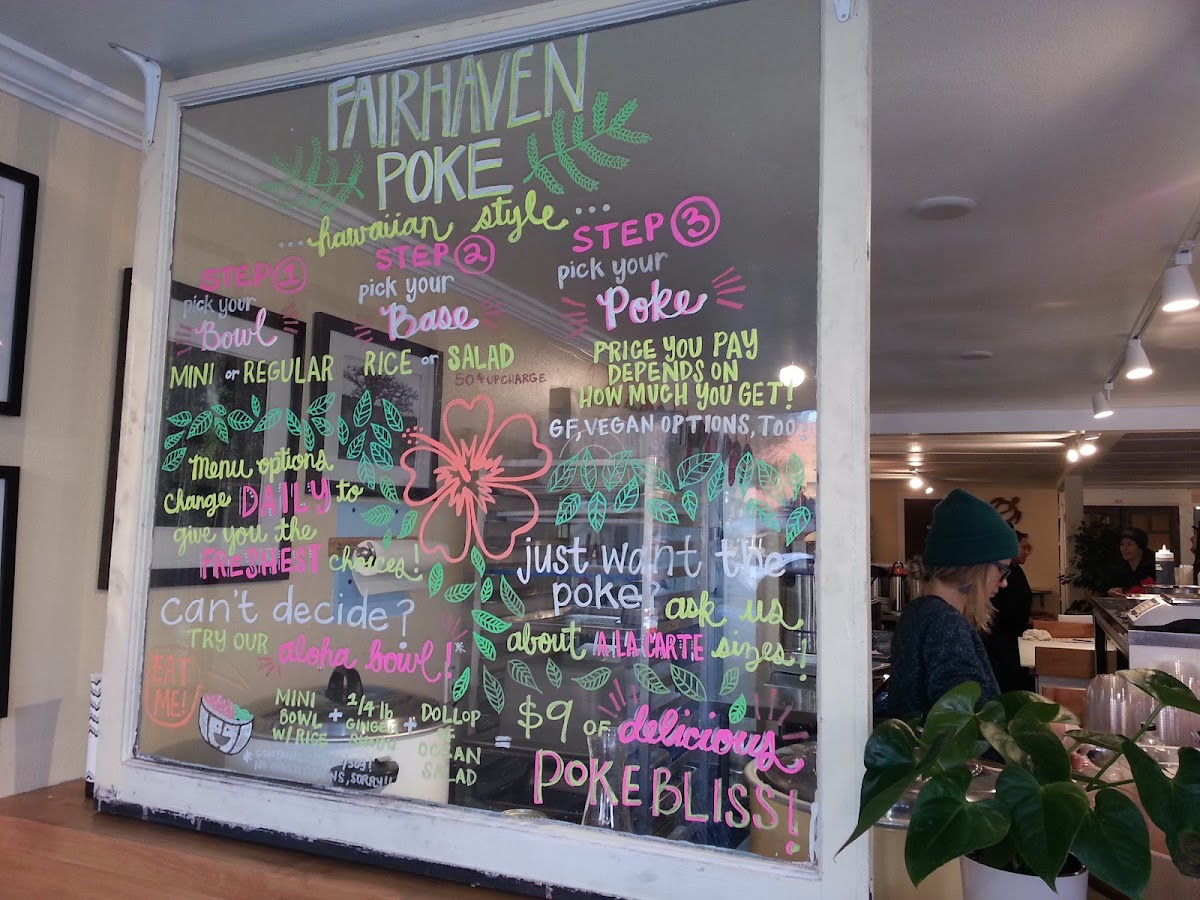 FAIRHAVEN
POKE
...hawaiian style...
STEP 1
pick your
Bowl
MINI or REGULAR
STEP 2
pick your
Base
RICE or SALAD
50¢ UPCHARGE
STEP 3
pick your
Poke
PRICE YOU PAY
DEPENDS ON
HOW MUCH YOU GET!
GF, VEGAN OPTIONS, TOO
Menu options
change DAILY to
give you the
FRESHEST choices!
can't decide?
TRY OUR aloha bowl!*
EAT
ME!
MINI
BOWL
W/RICE
+
1/4 lb
GINGER
+
DOLLOP
OF
OCEAN
SALAD
=
$9 OF delicious
POKE BLISS!
just want the
poke? ask us
about A LA CARTE sizes!
SORRY!!